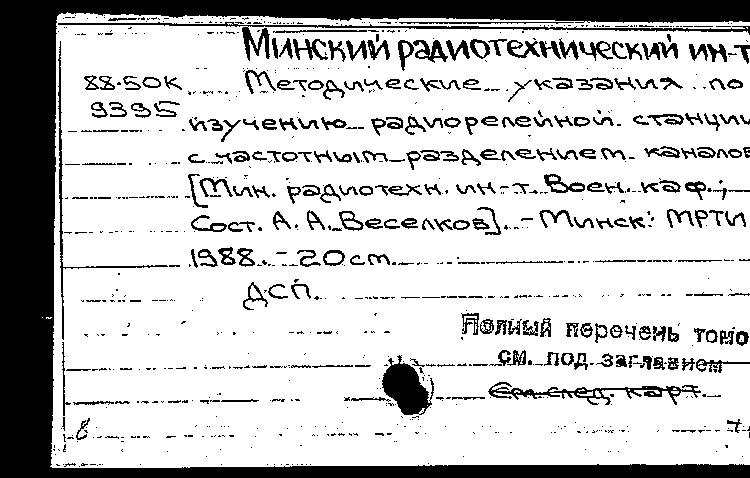 Минский радиотехнический ин-т
88-50К Методические указания по
9395 изучению радиорелейной станции
с частотным разделением каналов
[Мин. радиотехн. ин-т. Воен. каф.;
Сост. А. А. Веселков]. - Минск: МРТИ
1988. - 20 см.
ДСП.
Полный перечень томо
см. под заглавием
См. след. карт.
8